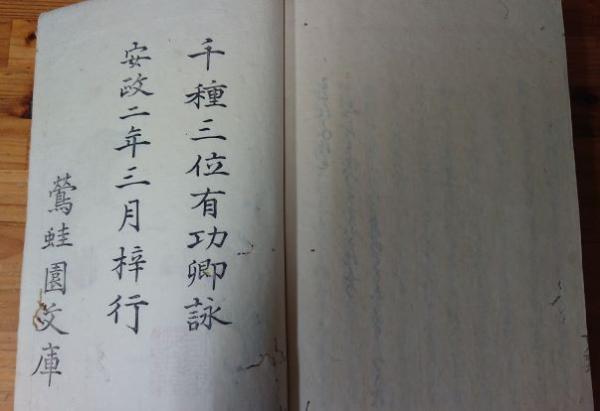 千種三位有功卿詠
安政二年三月梓行
鶯蛙園文庫